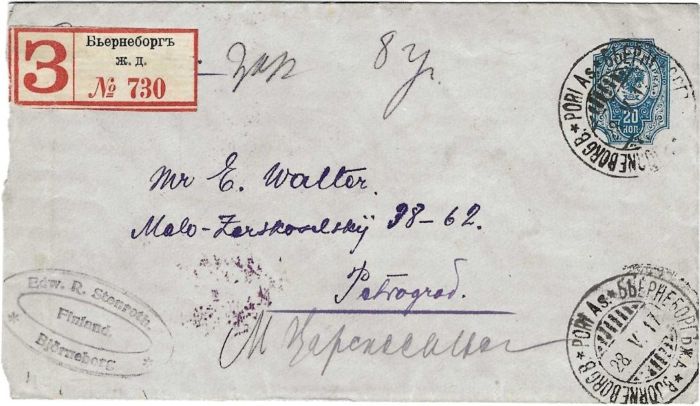 З
Бьернеборгъ
ж. д.
№ 730
8 у.
20
КОП
PORI As. * БЬЕРНЕБОРГ * BJÖRNEBORG B. *
Mr E. Walter.
Malo-Zarskoselskÿ 38-62.
Petrograd.
М Царскосельс
Edw. R. Stenroth.
Finland.
Björneborg
PORI As. * БЬЕРНЕБОРГЪ Ж. Д. * BJÖRNEBORG B. *
28. V. 17